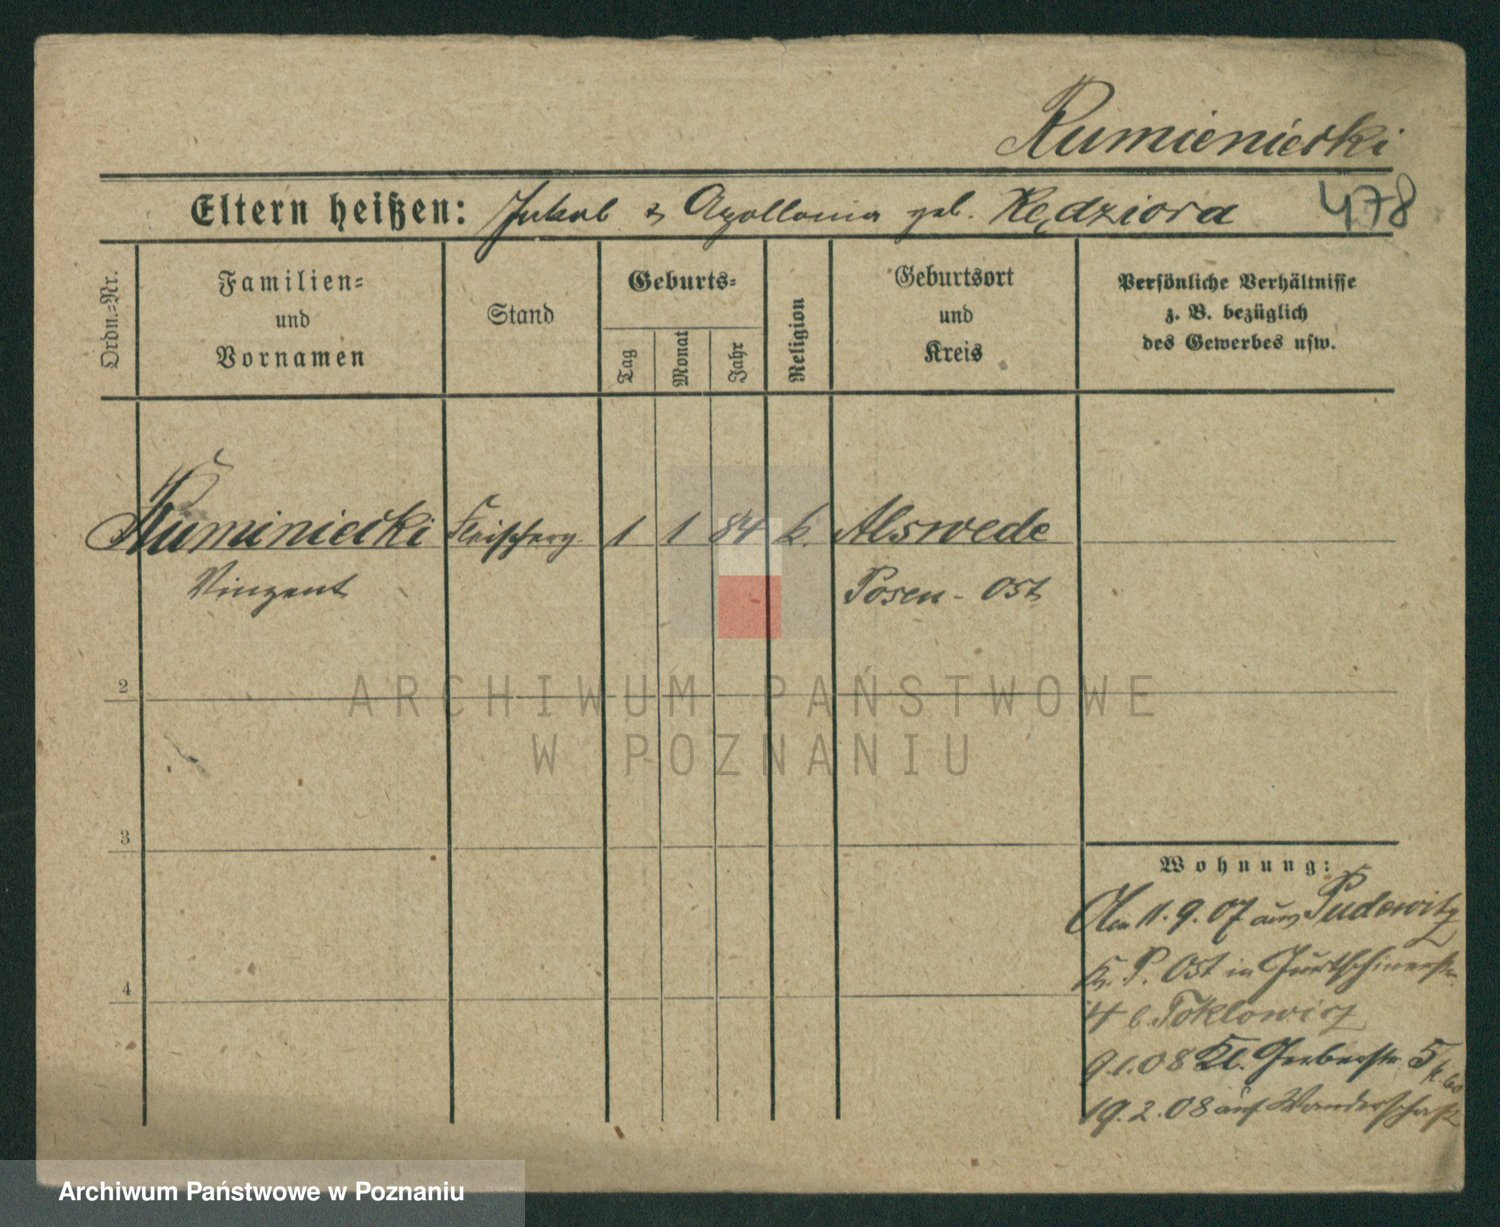 Rumieniecki
Eltern heißen: Jakob & Apollonia geb. Kędziora
478
Ordn.=Nr.
Familien=
und
Vornamen
Stand
Geburts=
Tag
Monat
Jahr
Religion
Geburtsort
und
Kreis
Persönliche Verhältnisse
z. B. bezüglich
des Gewerbes usw.
Ruminiecki Fleischerg. 1 1 84 k. Alswede
Vinzent Posen - Ost
2
3
4
ARCHIWUM PAŃSTWOWE
W POZNANIU
Wohnung:
Am 11.9.07 aus Pudewitz
Kr. P. Ost in Gurtschinerstr.
4 b.
9.1.08 Kl. Gerberstr. 5
19.2.08 auf Wanderschaft
Archiwum Państwowe w Poznaniu